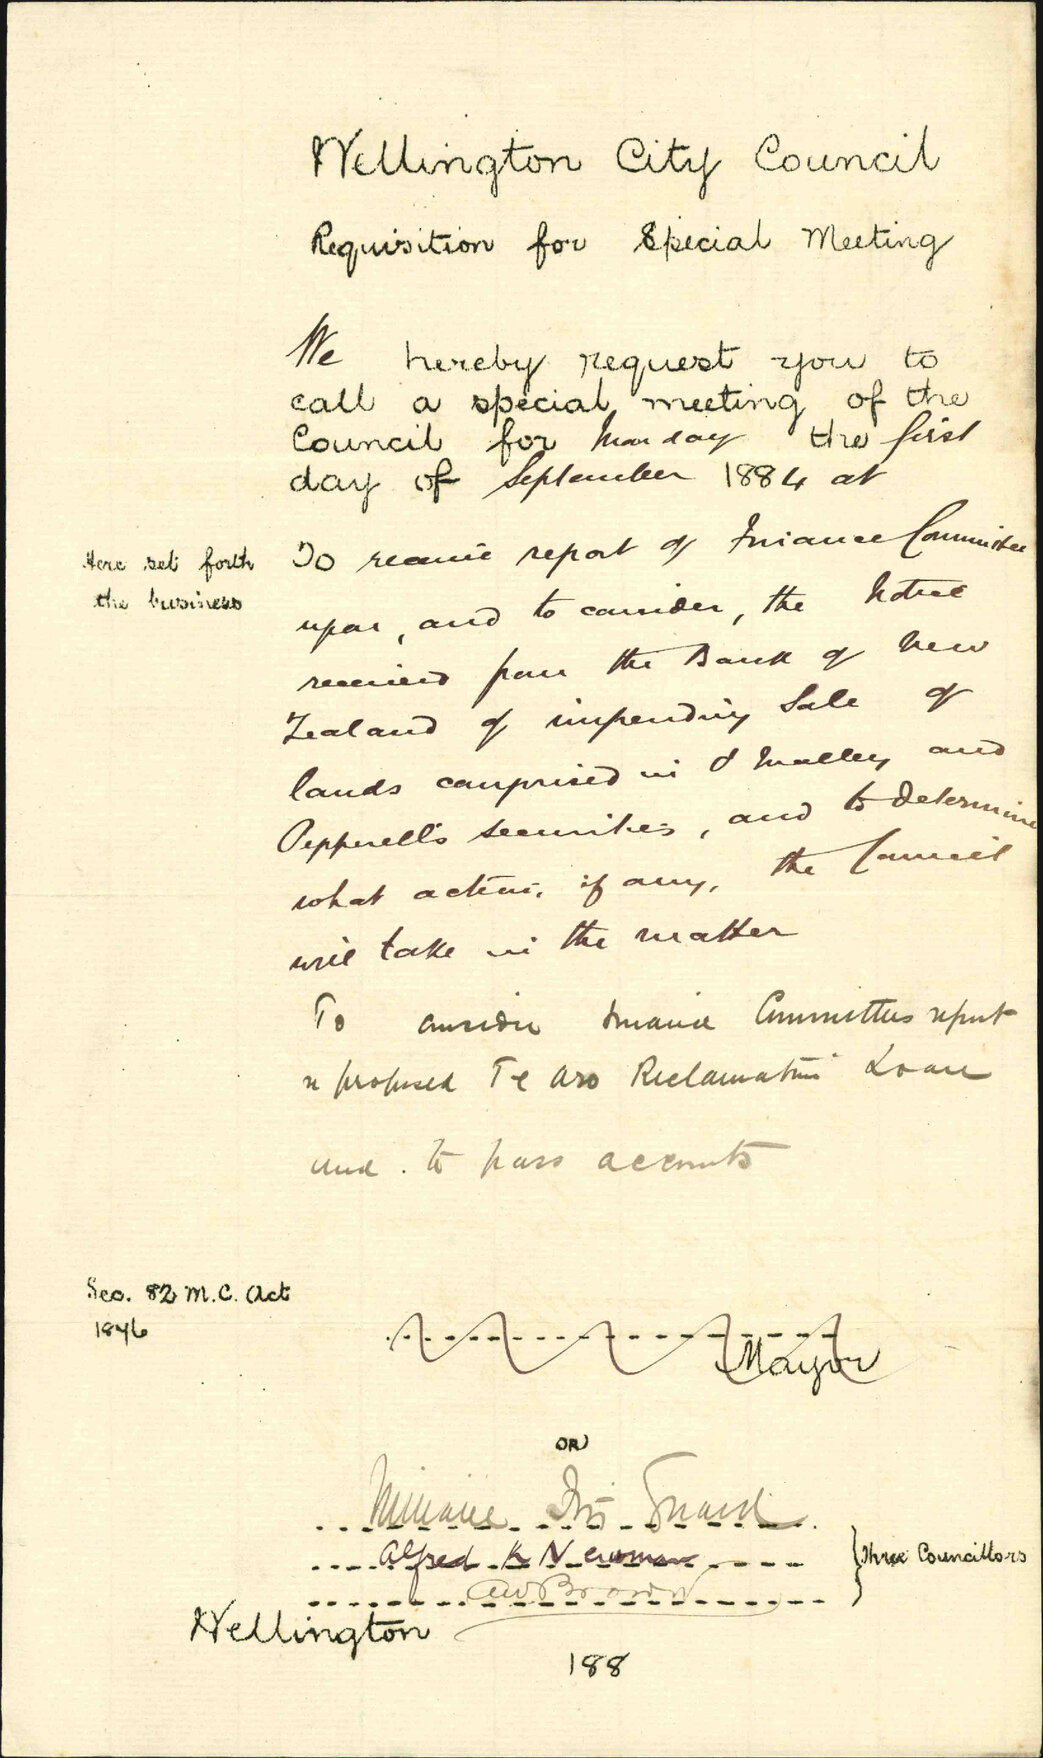 Wellington City Council
Requisition for Special Meeting
We hereby request you to
call a special meeting of the
Council for Monday the first
day of September 1884 at
Here set forth
the business
To receive report of Finance Committee
upon, and to consider, the Notice
received from the Bank of New
Zealand of impending Sale of
lands comprised in O'Malley and
Pepperell's securities, and to determine
what action, if any, the Council
will take in the matter
To consider Finance Committees report
re proposed Te Aro Reclamation Loan
and to pass accounts
Sec. 82 M.C. Act
1876
Mayor
OR
William Fitz Gerard
Alfred K Newman
AW Brown
Three Councillors
Wellington
188